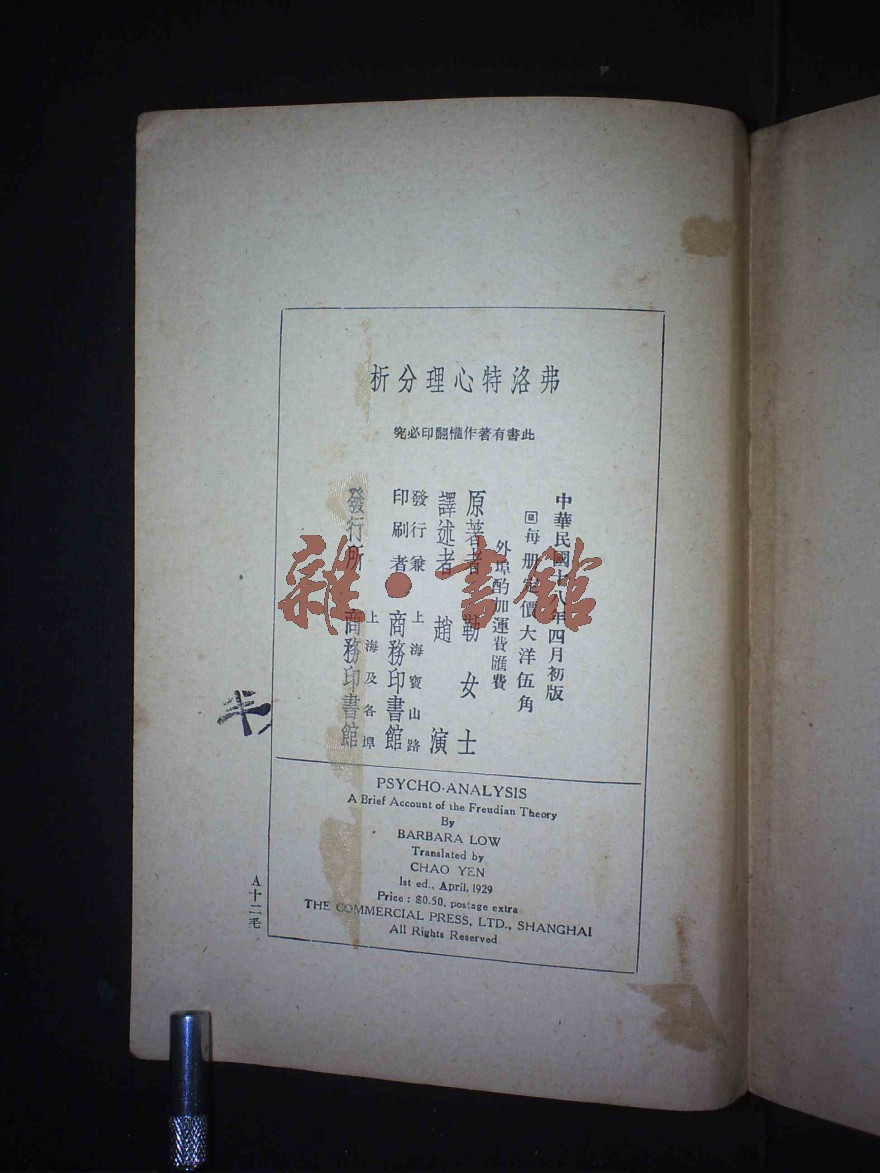 弗洛特心理分析
此書有著作權翻印必究
中華民國十八年四月初版
回每册定價大洋伍角
外埠酌加運費匯費
原著者 勒女士
譯述者 趙演
發行兼印刷者 上海寶山路 商務印書館
發行所 上海及各埠 商務印書館
PSYCHO-ANALYSIS
A Brief Account of the Freudian Theory
By
BARBARA LOW
Translated by
CHAO YEN
1st ed., April, 1929
Price : $0.50, postage extra
THE COMMERCIAL PRESS, LTD., SHANGHAI
All Rights Reserved
A十二毛
雜·書館